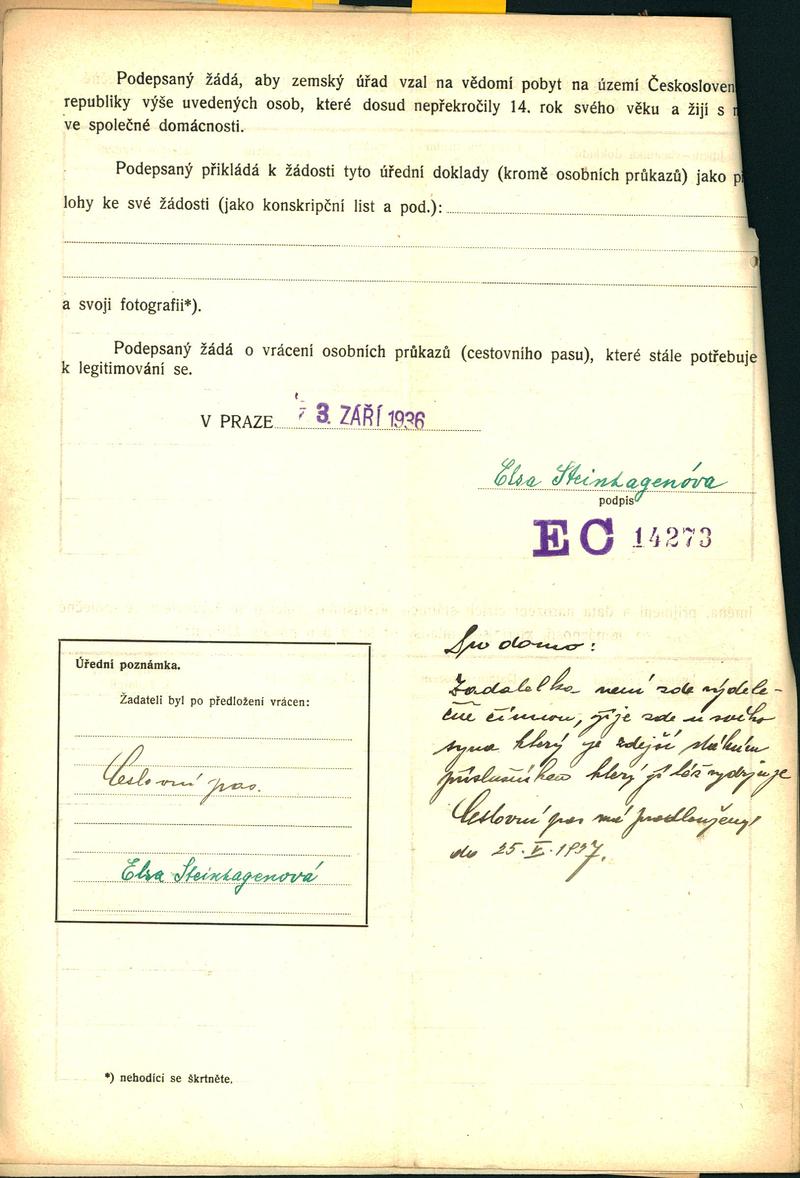 Podepsaný žádá, aby zemský úřad vzal na vědomí pobyt na území Českosloven
republiky výše uvedených osob, které dosud nepřekročily 14. rok svého věku a žijí s
ve společné domácnosti.
Podepsaný přikládá k žádosti tyto úřední doklady (kromě osobních průkazů) jako př
lohy ke své žádosti (jako konskripční list a pod.):
a svoji fotografii*).
Podepsaný žádá o vrácení osobních průkazů (cestovního pasu), které stále potřebuje
k legitimování se.
V PRAZE 3. ZÁŘÍ 1936
Elsa Steinhagenóva
podpis
EC 14273
Úřední poznámka.
Žadateli byl po předložení vrácen:
Cestovní pas.
Elsa Steinhagenová
Pro domo:
Žadatelka není zde výděle-
čně činnou, žije zde u svého
syna který je zdejší státním
příslušníkem který ji též vydržuje
Cestovní pas má prodloužený
do 25. V. 1937.
*) nehodící se škrtněte.